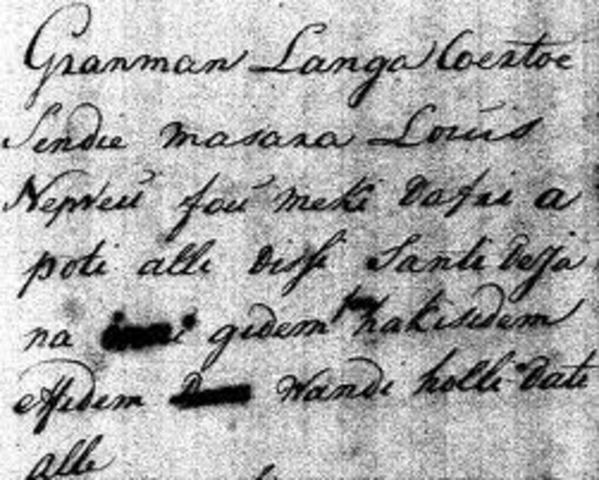 Granman Langa Coertoe
Sendie masara Louis
Nepveu fou meki va fri a
poti alli dissi Santi dejja
na gidem hakisidem
effidem wandi holli dati
alle